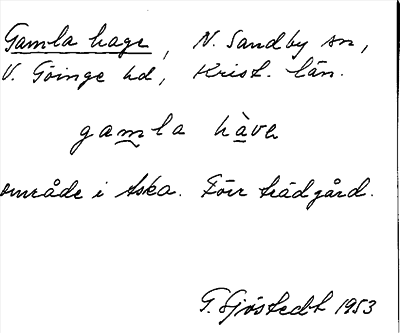 Gamla hage, N. Sandby sn,
V. Göinge hd, Krist. län.
gamla hàvɐ
område i Aska. Förr trädgård.
G. Sjöstedt 1953